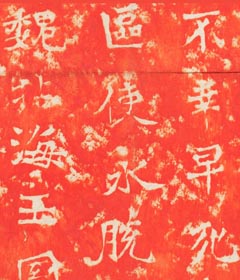 不幸早死
區使永脫
魏北海王國